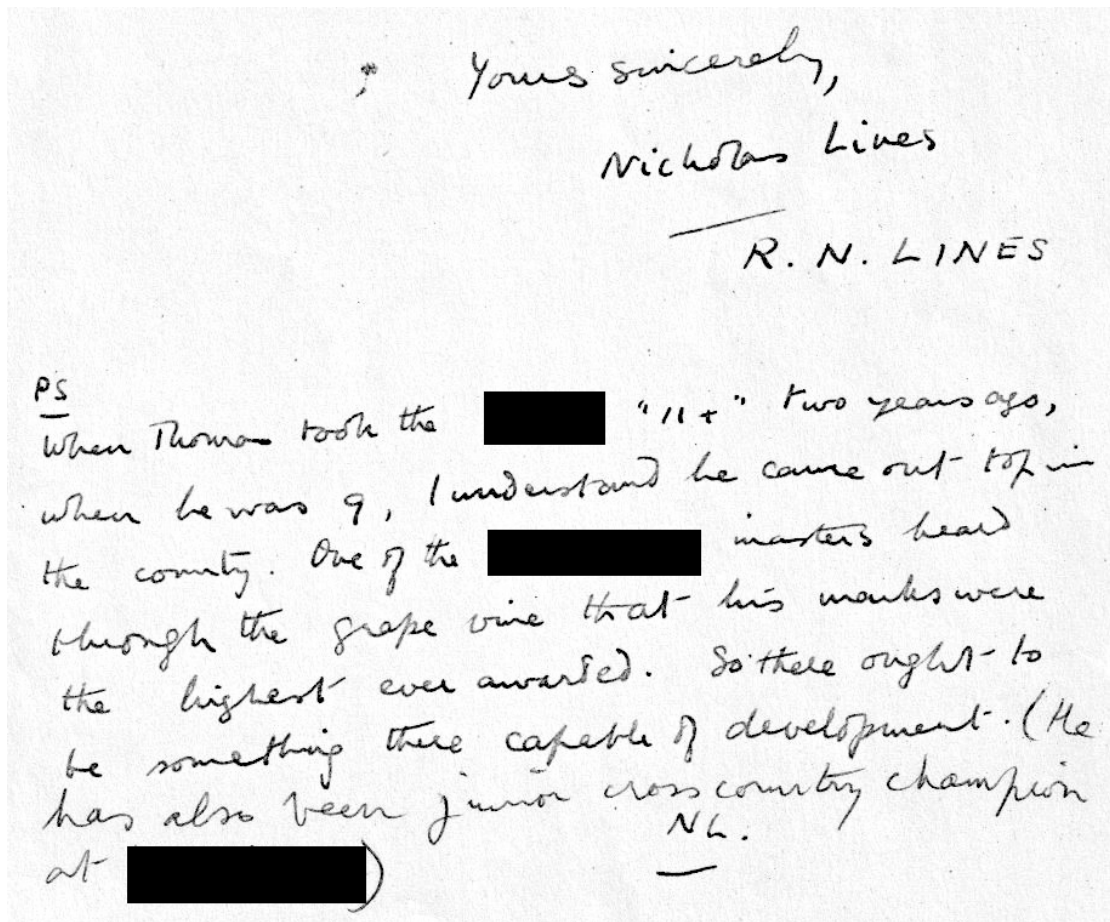 Yours sincerely,
Nicholas Lines
R. N. LINES
PS
When Thomas took the "11+" two years ago,
when he was 9, I understand he came out top in
the county. One of the masters heard
through the grape vine that his marks were
the highest ever awarded. So there ought to
be something there capable of development. (He
has also been junior cross country champion
at )
NL.